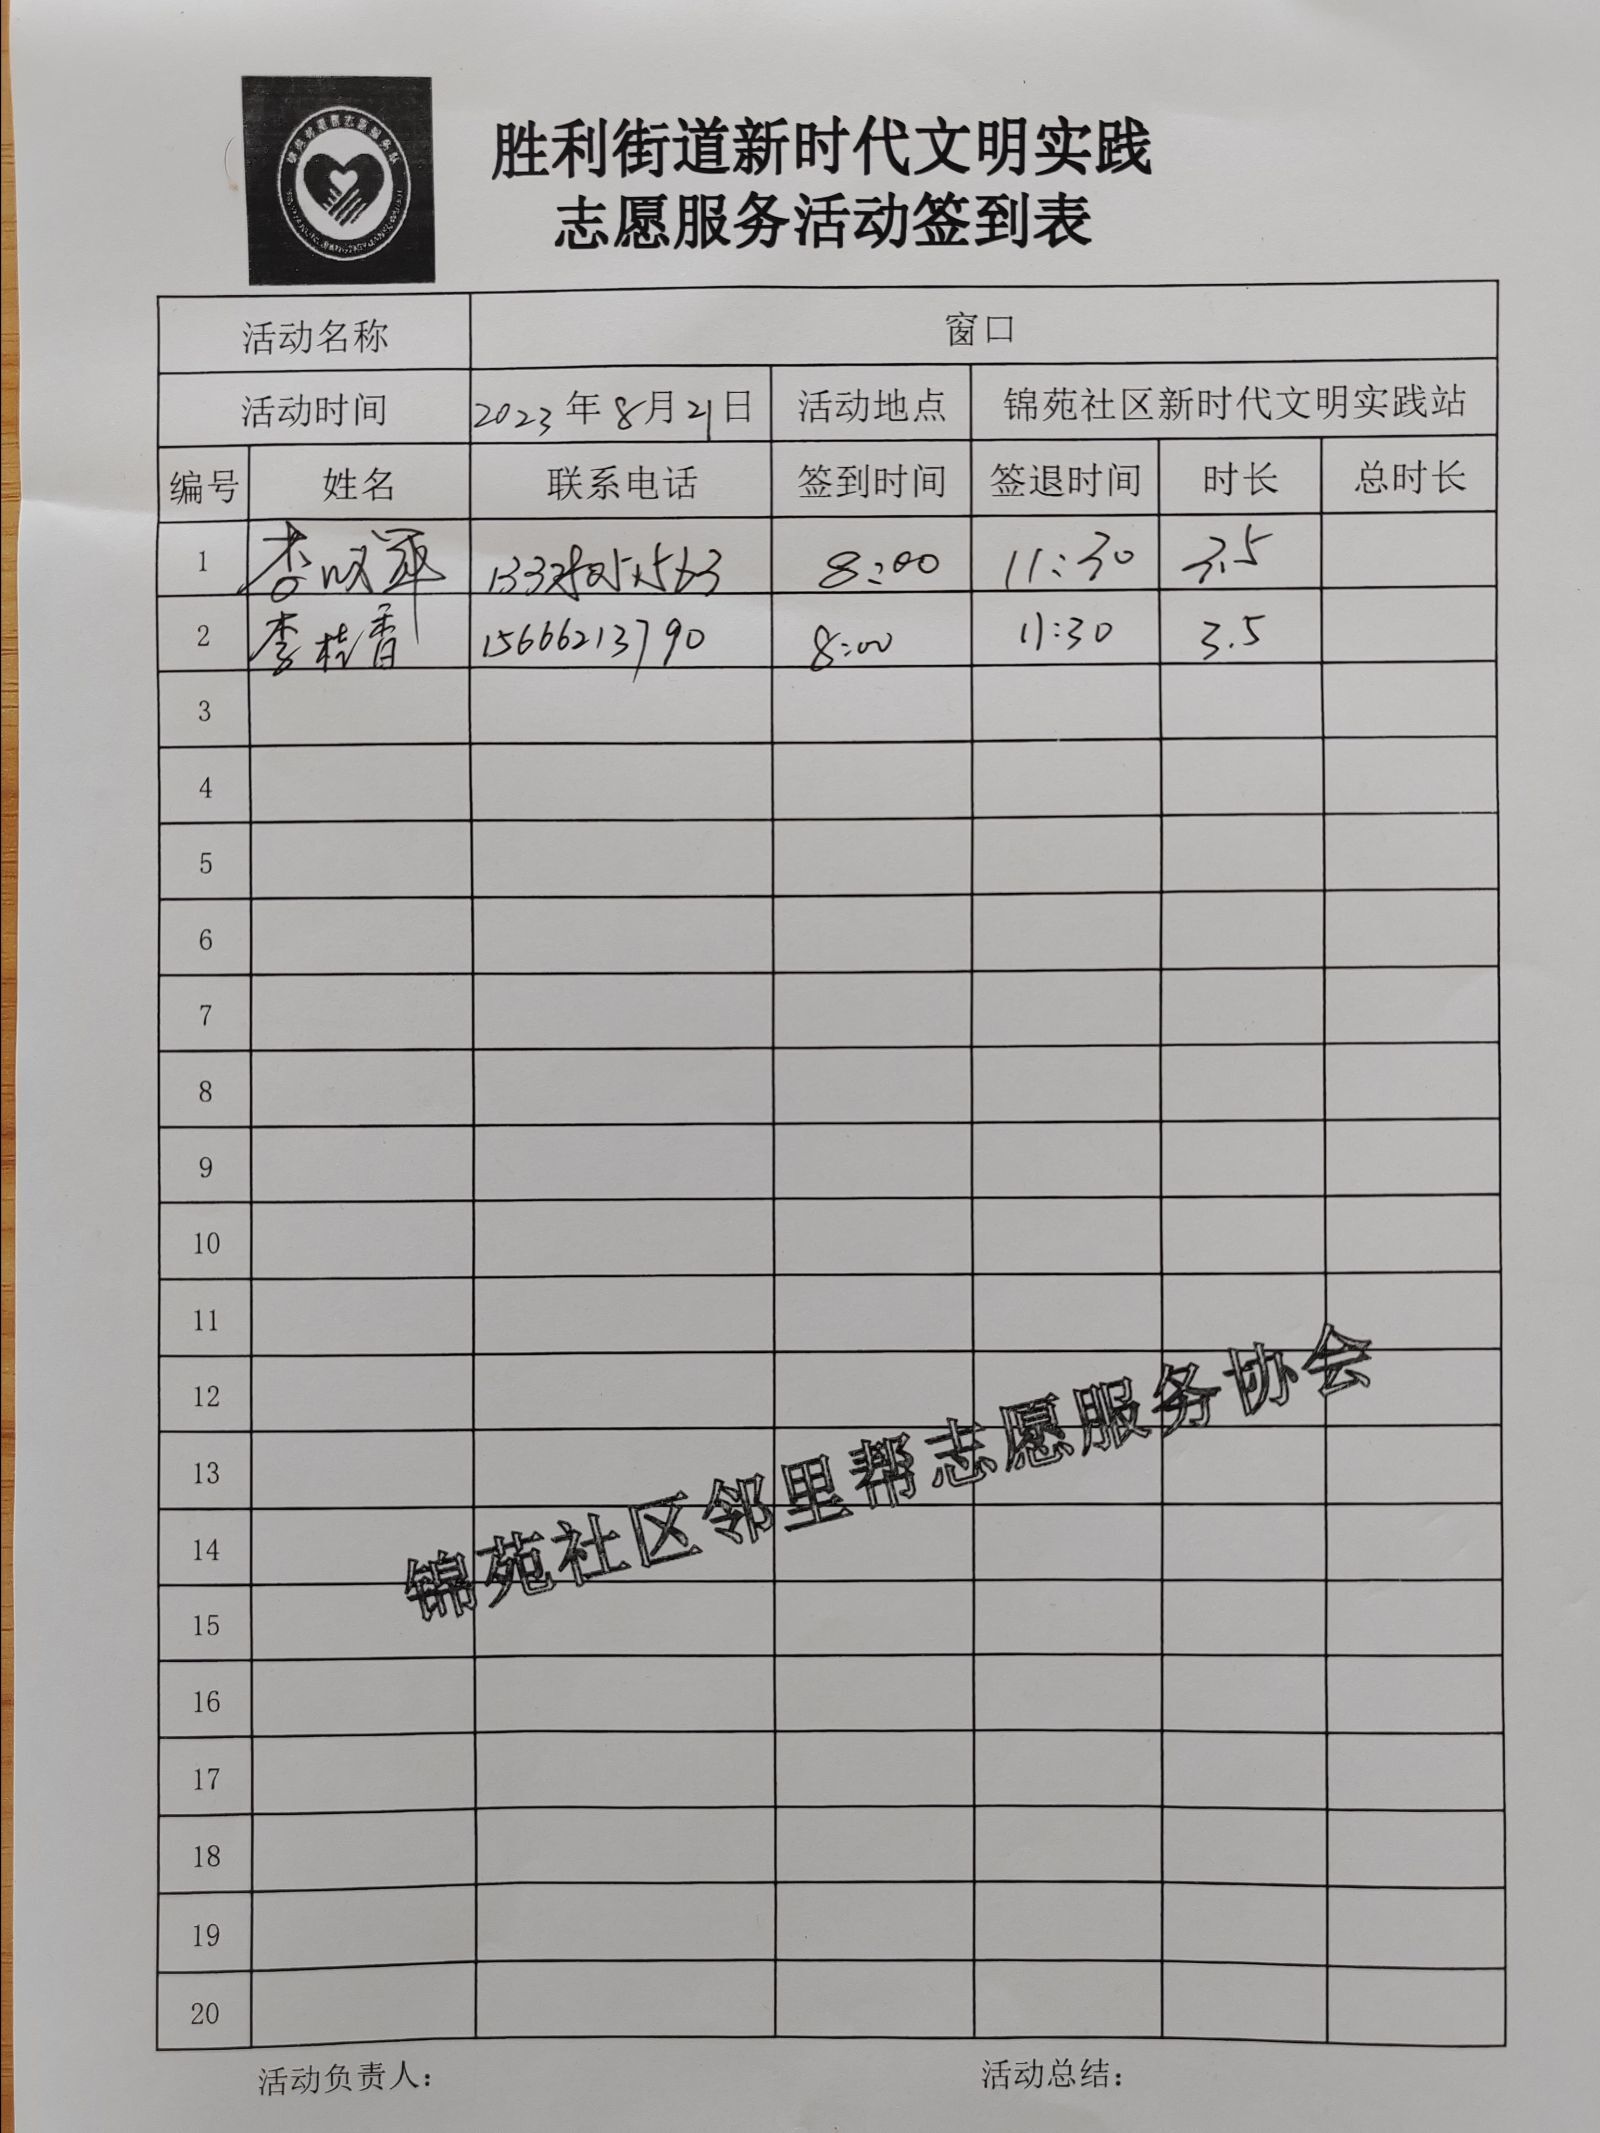 胜利街道新时代文明实践
志愿服务活动签到表
活动名称 窗口
活动时间 2023年8月21日 活动地点 锦苑社区新时代文明实践站
编号 姓名 联系电话 签到时间 签退时间 时长 总时长
1 8:00 11:30 3.5
2 李桂香 15666213790 8:00 11:30 3.5
3
4
5
6
7
8
9
10
11
12
13
14
15
16
17
18
19
20
锦苑社区邻里帮志愿服务协会
活动负责人: 活动总结: